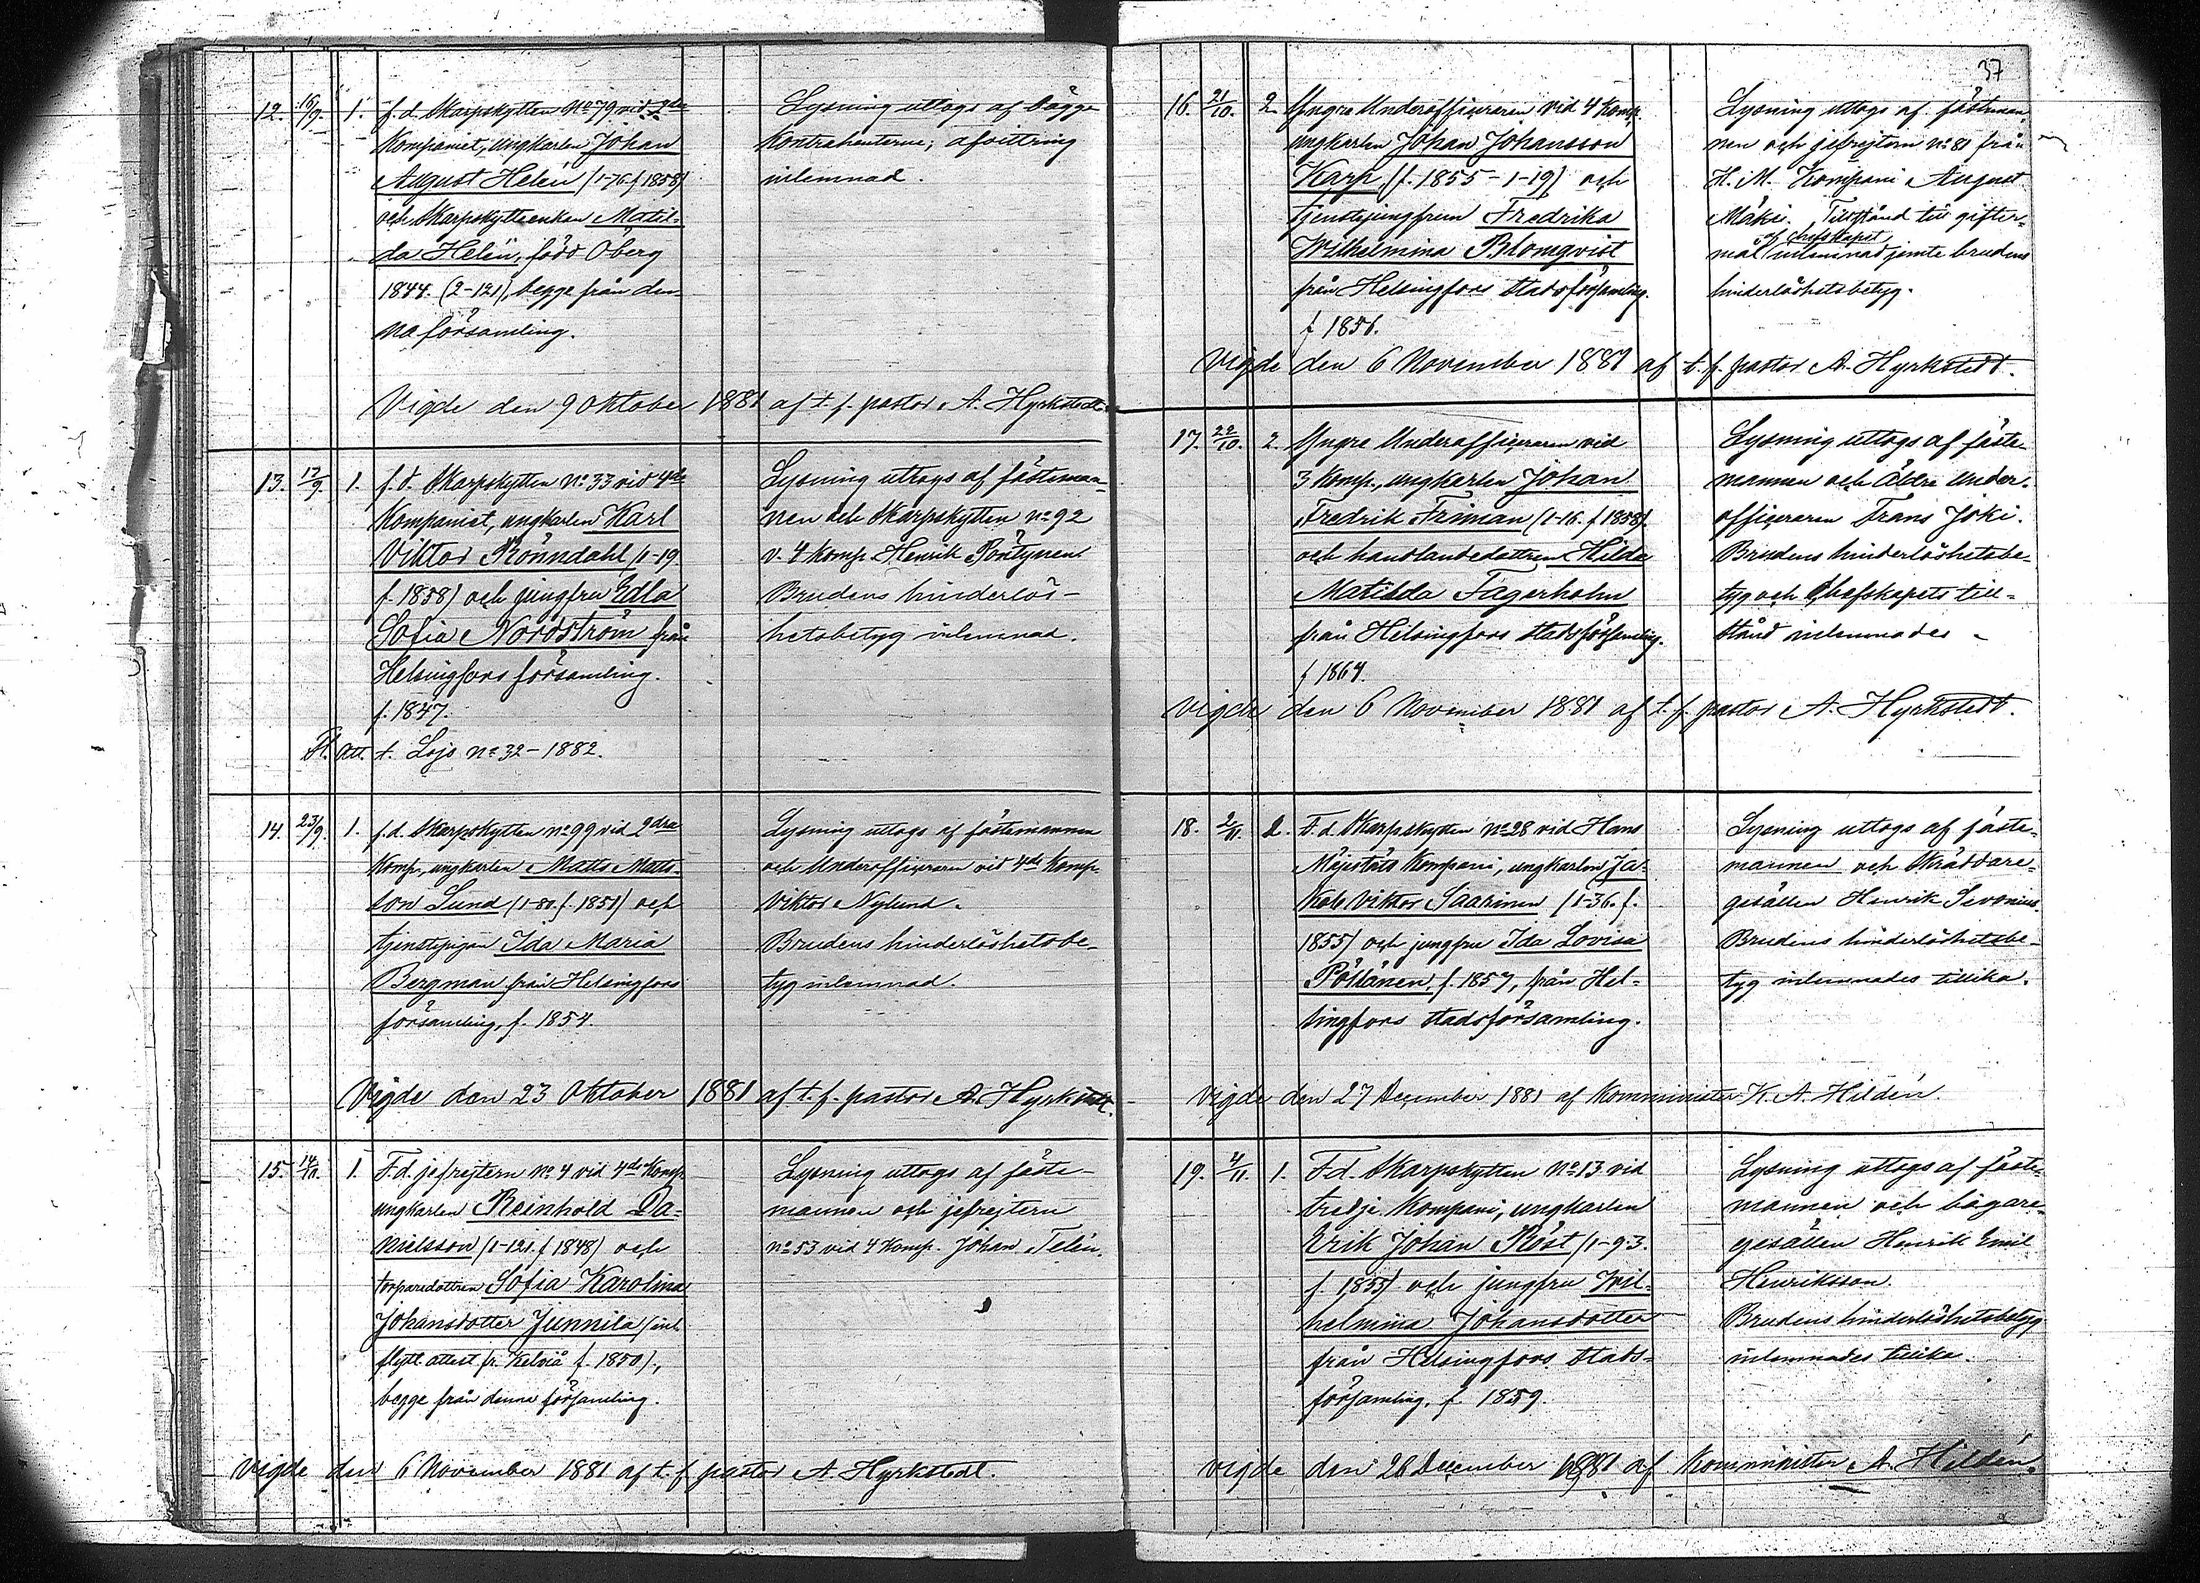 12. 16/9. 1. f. d. Skarpskytten No 79 vid 2dra
Kompaniet, ungkarlen Johan
August Helén (1-76. f. 1858)
och Skarpskytteenkan Matil-
da Helén, född Öberg
1844. (2-121), begge från den-
na församling.
Lysning uttogs af bägge
Kontrahenterne; afvittring
inlemnad.
Vigde den 9 Oktober 1881 af t. f. pastor A. Hyrkstedt.
13. 17/9. 1. f. d. Skarpskytten No 33 vid 4de
Kompaniet, ungkarlen Karl
Viktor Rönndahl (1-19
f. 1858) och jungfru Edla
Sofia Nordström från
Helsingfors församling.
f. 1847.
Fl. att. t. Lojo No 32 - 1882.
Lysning uttogs af fästeman-
nen och Skarpskytten No 92
v. 4 komp. Henrik Pöntynen
Brudens hinderlös-
hetsbetyg inlemnad.
14. 23/9. 1. f. d. Skarpskytten No 99 vid 2dra
Komp., ungkarlen Matts Matts-
son Sund (1-80. f. 1851) och
tjenstepigan Ida Maria
Bergman från Helsingfors
församling, f. 1854.
Lysning uttogs af fästemannen
och Underofficeraren vid 4de Komp.
Viktor Nylund.
Brudens hinderlöshetsbe-
tyg inlemnad.
Vigde den 23 Oktober 1881 af t. f. pastor A. Hyrkstedt.
15. 14/10. 1. F. d. jefrejtern No 4 vid 4de Komp.
ungkarlen Reinhold Da-
nielsson (1-121. f. 1848) och
torparedottren Sofia Karolina
Johansdotter Junnila (inl.
flytt. attest fr. Kelviå f. 1850),
begge från denna församling.
Lysning uttogs af fäste-
mannen och jefrejtern
No 53 vid 4 Komp. Johan Telén.
Vigde den 6 November 1881 af t. f. pastor A. Hyrkstedt.
37
16. 21/10. 2. Yngre Underofficeraren vid 4 Komp.
ungkarlen Johan Johansson
Karp, (f. 1855 - 1-19) och
tjenstejungfrun Fredrika
Wilhelmina Blomqvist
från Helsingfors stadsförsamling.
f. 1856.
Lysning uttogs af fästeman-
nen och jefrejtern No 81 från
H. M. Kompani August
Mäki. Tillstånd till gifter-
af chefskapet
mål inlemnad jemte brudens
hinderlöshetsbetyg.
Vigde den 6 November 1881 af t. f. pastor A. Hyrkstedt.
17. 22/10. 2. Yngre Underofficeraren vid
3 Komp., ungkarlen Johan
Fredrik Friman (1-16. f. 1858).
och handlandedottren Hilda
Matilda Fagerholm
från Helsingfors stadsförsamling.
f. 1864.
Lysning uttogs af fäste-
mannen och Äldre under-
officeraren Frans Joki.
Brudens hinderlöshetsbe-
tyg och Chefskapets till-
stånd inlemnades
Vigde den 6 November 1881 af t. f. pastor A. Hyrkstedt.
18. 2/11. 2. F. d. Skarpskytten No 28 vid Hans
Majestäts Kompani, ungkarlen Ja-
kob Viktor Saarinen (1-36. f.
1855) och jungfru Ida Lovisa
Pöllänen, f. 1857, från Hel-
singfors stadsförsamling.
Lysning uttogs af fäste-
mannen och Skräddare-
gesällen Henrik Sevonius.
Brudens hinderlöshetsbe-
tyg inlemnades tillika.
Vigde den 27 December 1881 af Komminister K. A. Hildén.
19. 4/11. 1. F. d. Skarpskytten No 13 vid
tredje Kompani, ungkarlen
Erik Johan Röst (1-93.
f. 1855) och jungfru Wil-
helmina Johansdotter
från Helsingfors stads-
församling, f. 1859.
Lysning uttogs af fäste-
mannen och bagare-
gesällen Henrik Emil
Henriksson.
Brudens hinderlöshetsbetyg
inlemnades tillika.
Vigde den 26 December 1881 af Komminister A. Hildén.